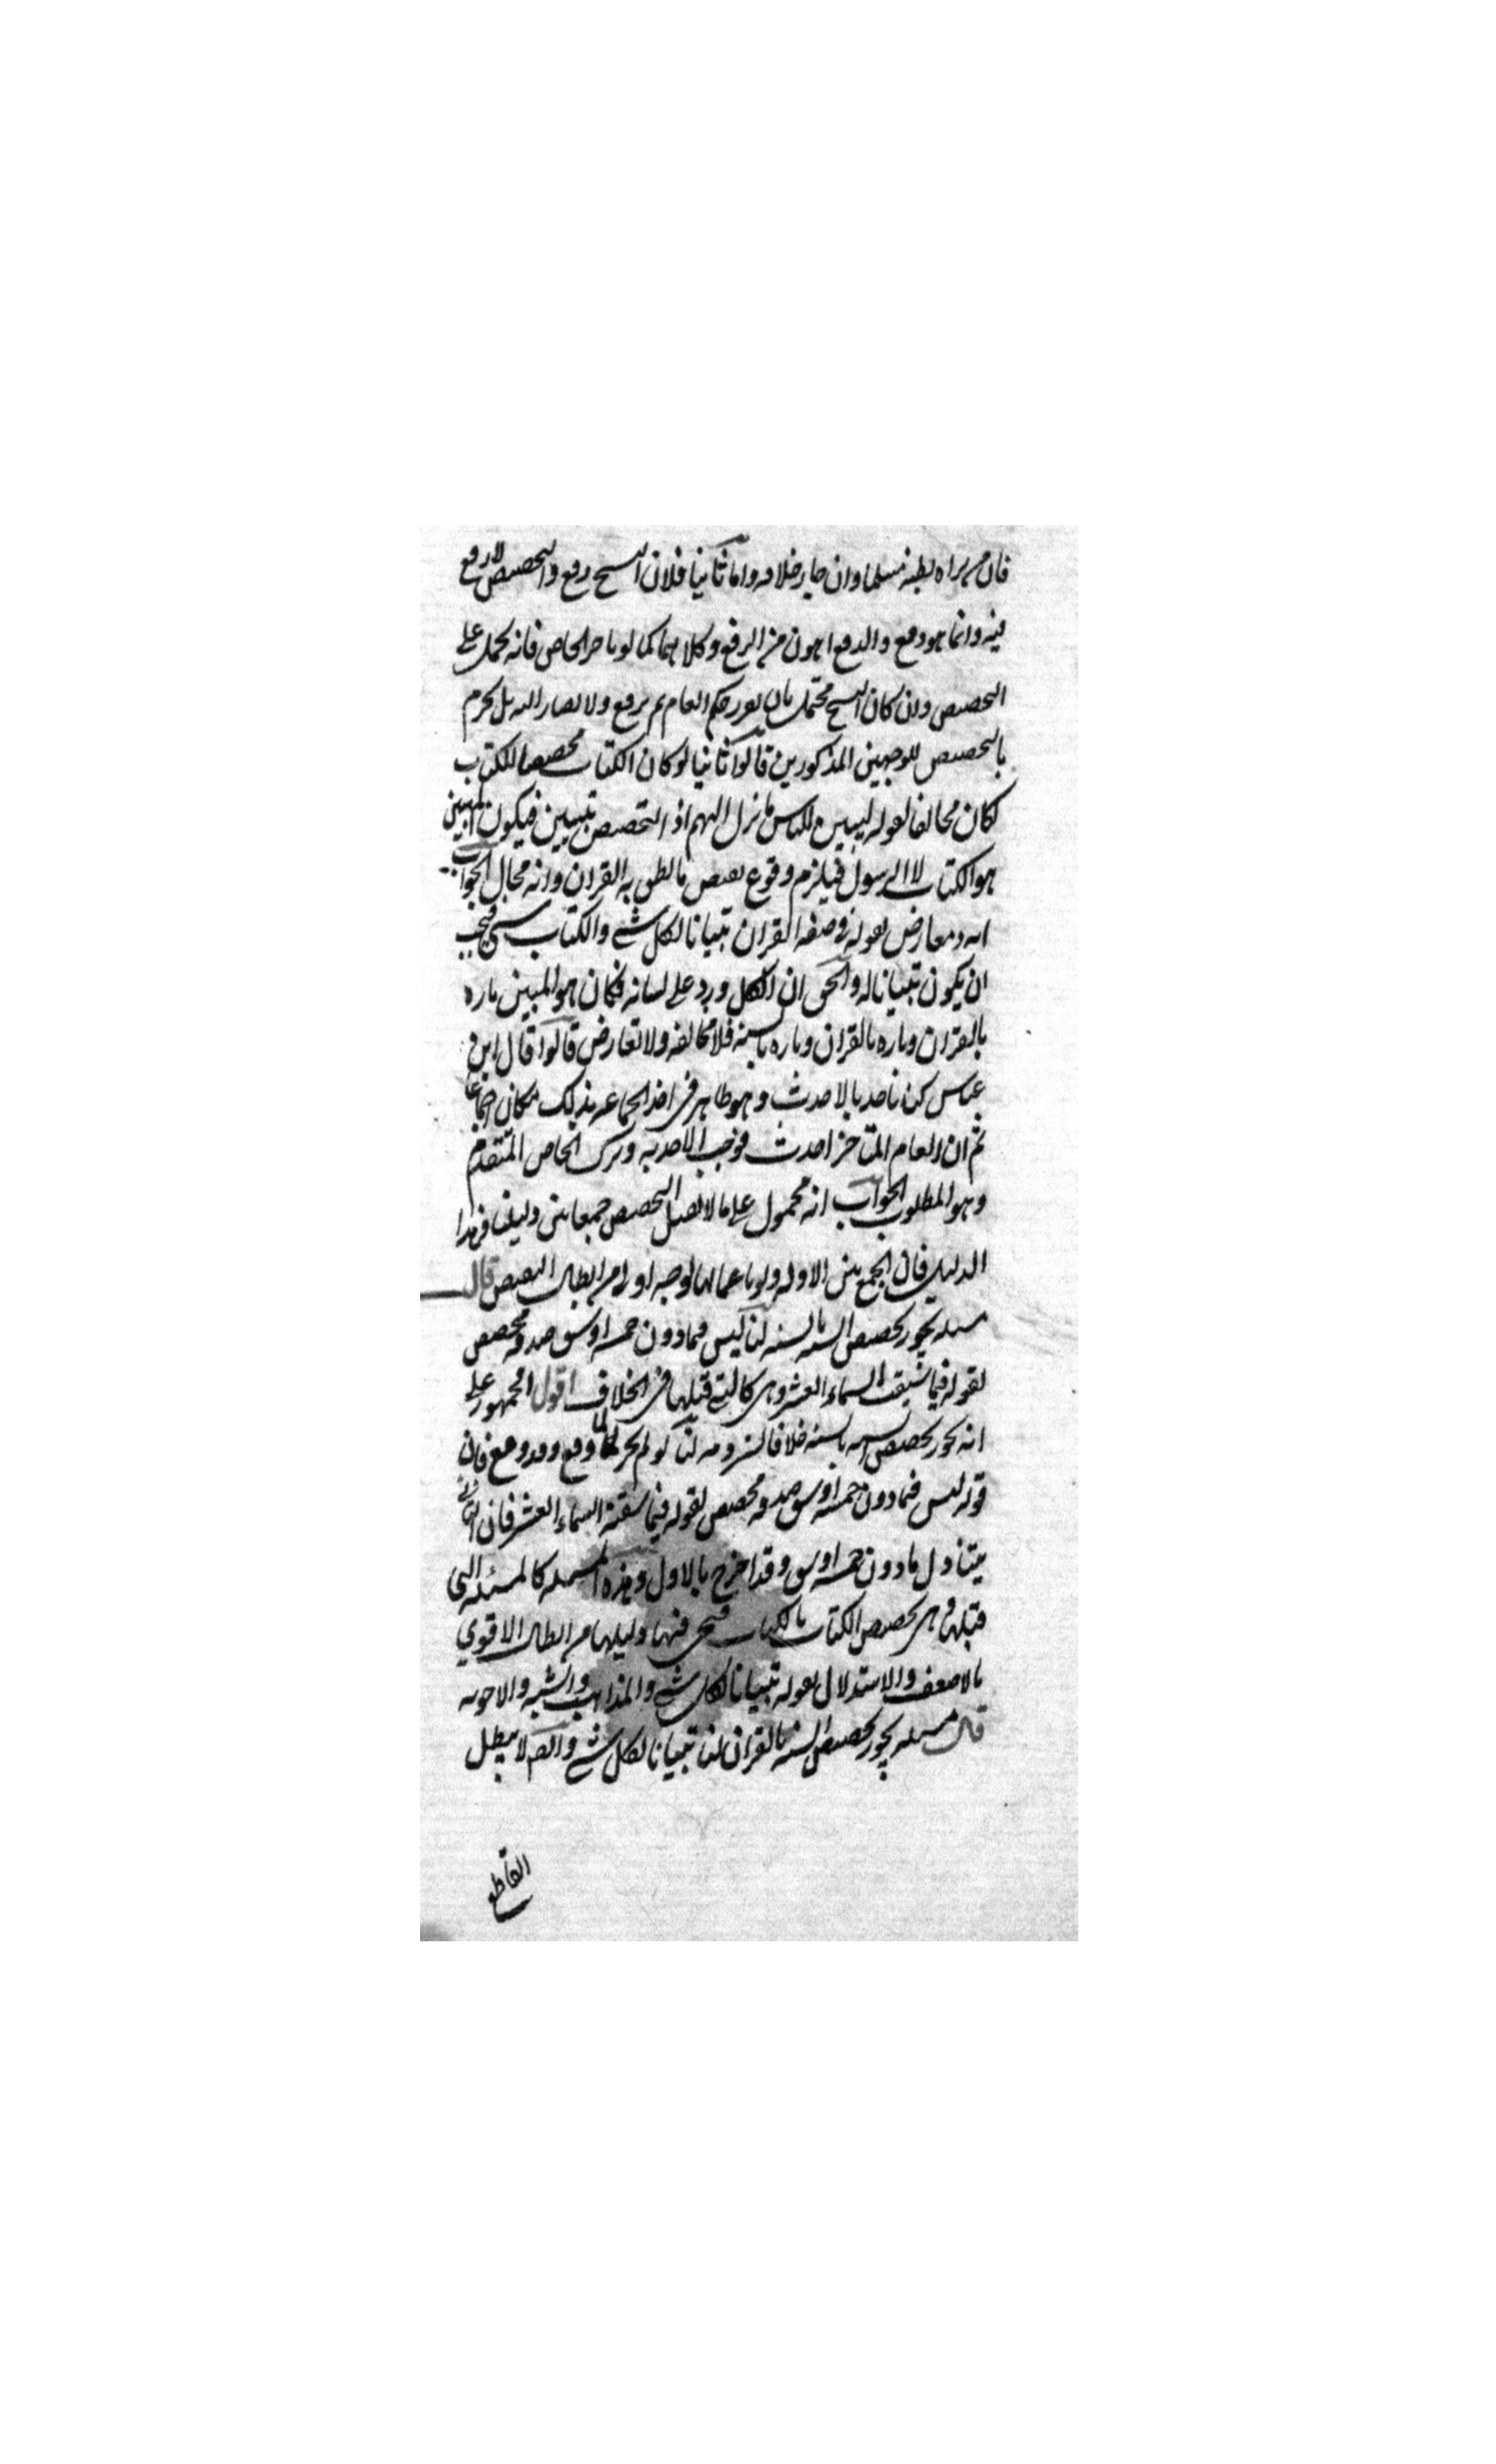 فان من يراه يظنه مسلما وان جاز خلافه واما ثانيا فلان النسخ رفع والتخصيص لا رفع
فيه وانما هو دفع والدفع اهون من الرفع وكلاهما كما لو تاخر الخاص فانه يحمل على
التخصيص وان كان النسخ محتملا بان يقرر حكم العام ثم يرفع ولا يصار اليه بل يحزم
بالتخصيص للوجهين المذكورين قالوا ثانيا لو كان الكتاب مخصصا للكتاب
لكان مخالفا لقوله ليبين للناس ما نزل اليهم اذ التخصيص تبيين فيكون المبين
هو الكتاب لا الرسول فيلزم وقوع نقيض ما نطق به القران وانه محال الجواب
انه معارض بقوله في صفة القران تبيانا لكل شئ والكتاب شئ فيجب
ان يكون تبيانا له والحق ان الكل ورد على لسانه فكان هو المبين تاره
بالقران وتاره بالقران وتاره بالسنه فلا مخالفه ولا تعارض قالوا قال ابن
عباس كنا ناخذ بالاحدث وهو ظاهر في اخذ الجماعه بذلك فكان اجماعا
ثم ان العام المتاخر احدث فوجب الاخذ به وترك الخاص المتقدم
وهو المطلوب الجواب انه محمول على ما لا يقبل التخصيص جمعا بين دليلنا وهذا
الدليل فان الجمع بين الادله ولو باعمالها لوجه اولى من ابطال البعض قال
مسئله يجوز تخصيص السنه بالسنه لنا ليس فيما دون خمسه اوسق صدقه مخصص
لقوله فيما سقت السماء العشر وهي كالتي قبلها في الخلاف اقول الجمهور على
انه يجوز تخصيص السنه بالسنه خلافا لشرذمه لنا لو لم يجز لما وقع وقد وقع فان
قوله ليس فيما دون خمسه اوسق صدقه مخصص لقوله فيما سقته السماء العشر فان الثاني
يتناول ما دون خمسه اوسق وقد اخرج بالاول وهذه المسئله كالمسئله التي
قبلها وهي تخصيص الكتاب بالكتاب فيجئ فيها دليلها من ابطال الاقوي
بالاضعف والاستدلال بقوله تبيانا لكل شئ والمذاهب والشبه والاجوبه
قال مسئله يجوز تخصيص السنه بالقران لنا تبيانا لكل شئ وايضا لا يبطل
القاطع